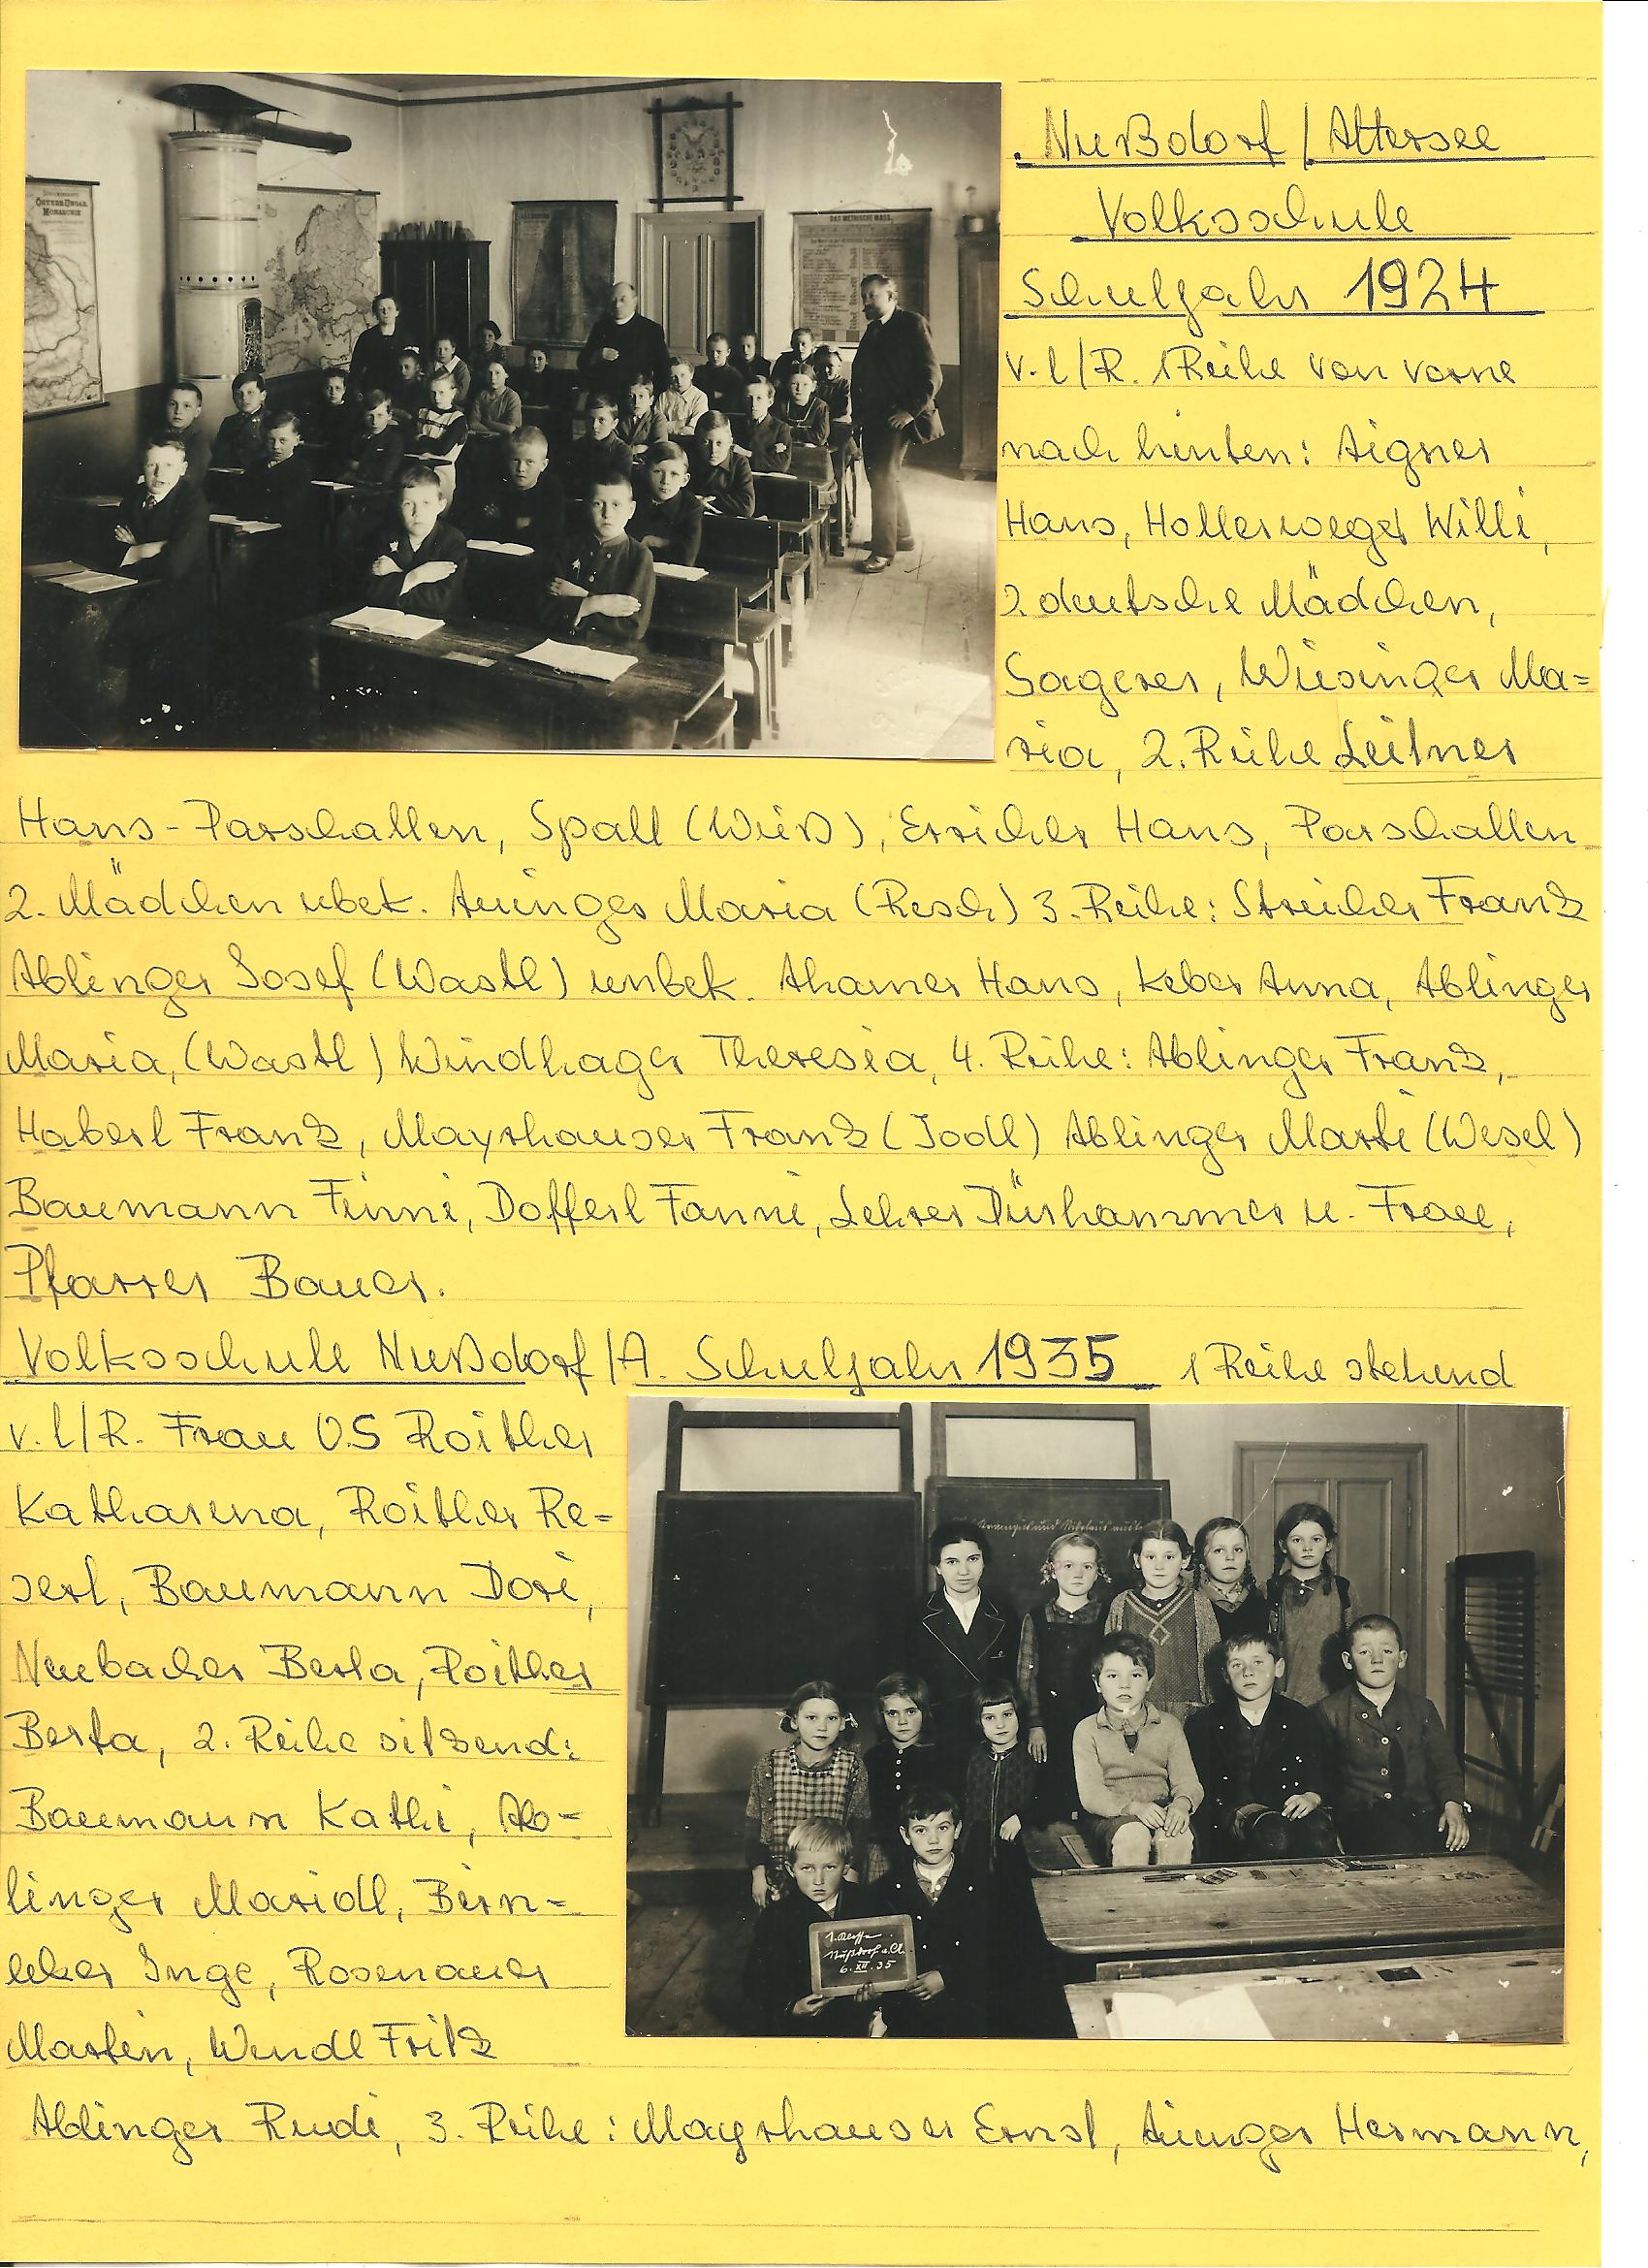 Nußdorf / Attersee
Volksschule
Schuljahr 1924
v. l/R. 1 Reihe von vorne
nach hinten: Aigner
Hans, Hollerweger Willi,
2 deutsche Mädchen,
Sagerer, Wiesinger Ma=
ria, 2. Reihe Leitner
Hans - Parschallen, Spall (Weiß), Ericher Hans, Parschallen
2. Mädchen ubek. Auinger Maria (Resch) 3. Reihe: Streicher Franz
Ablinger Josef (Wastl) unbek. Ahamer Hans, Keber Anna, Ablinger
Maria, (Wastl) Windhager Theresia, 4. Reihe: Ablinger Franz,
Haberl Franz, Mayrhauser Franz (Jodl) Ablinger Marti (Wesel)
Baumann Finni, Dofferl Fanni, Lehrer Dürhammer u. Frau,
Pfarrer Bauer.
Volksschule Nußdorf /A. Schuljahr 1935 1 Reihe stehend
v. l/R. Frau OS Roither
Katharina, Roither Re=
serl, Baumann Dori,
Neubacher Berta, Roither
Berta, 2. Reihe sitzend:
Baumann Kathi, Ab=
linger Maridl, Birn=
leker Inge, Rosenauer
Martin, Wendl Fritz
Ablinger Rudi, 3. Reihe: Mayrhauser Ernst, Auinger Hermann,
ÖSTERR. UNGAR.
MONARCHIE
DAS METRISCHE MASS.
1. Klasse
Nußdorf a. A.
6. XII. 35